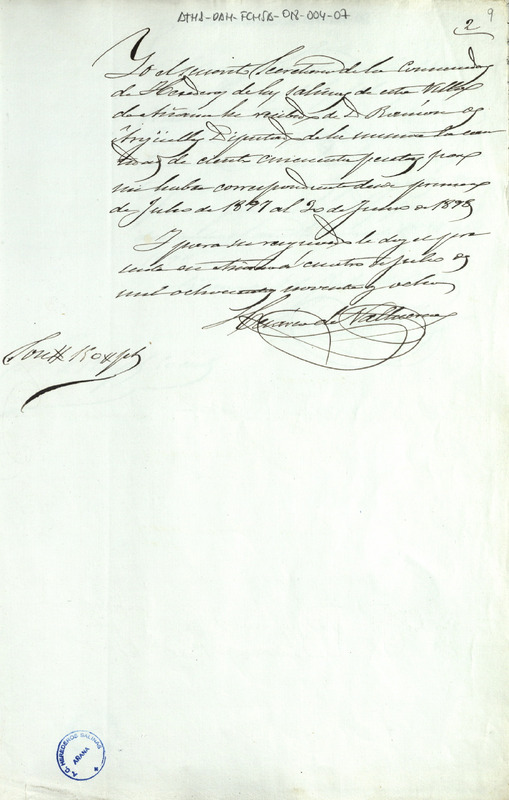 ATHA-DAH-FCHSA-018-004-07
2
9
Yo el infrito Secretario de la Comunidad
de Herederos de las salinas de esta Villa
de Añana he recibido de D. Ramon de
Argüelles Diputado de la misma la can
tidad de ciento cincuenta pesetas por
mi haber correspondiente desde primero
de Julio de 1897 al 30 de Junio de 1898
Y para su resguardo le doy el pre
sente en Añana á cuatro de Julio de
mil ochocientos noventa y ocho
de Valluerca
Son 150 pts
A. C. HEREDEROS SALINAS
AÑANA